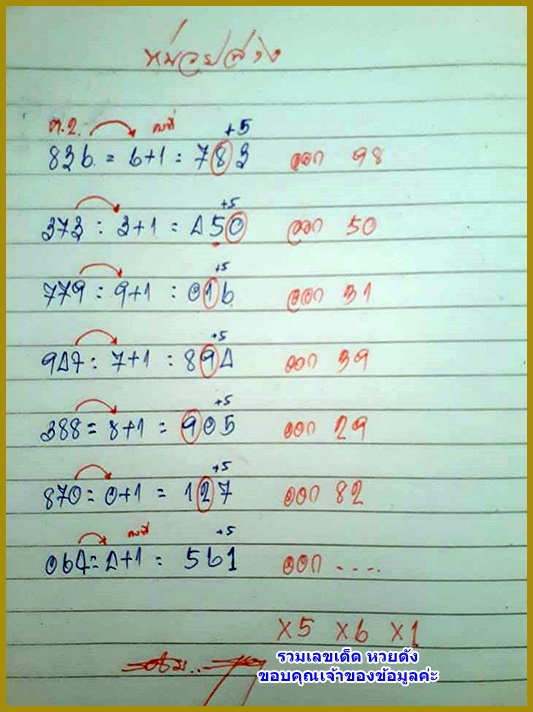 หน่วยล่าง
ต.2. คงที่ +5
836 = 6+1 : 783 ออก 98
+5
373 : 3+1 = 450 ออก 50
+5
779 : 9+1 : 016 ออก 31
+5
947 : 7+1 : 894 ออก 39
+5
388 = 8+1 = 905 ออก 29
+5
870 = 0+1 = 127 ออก 82
คงที่ +5
064 = 4+1 = 561 ออก ....
x5 x6 x1
รวมเลขเด็ด หวยดัง
ขอบคุณเจ้าของข้อมูลค่ะ